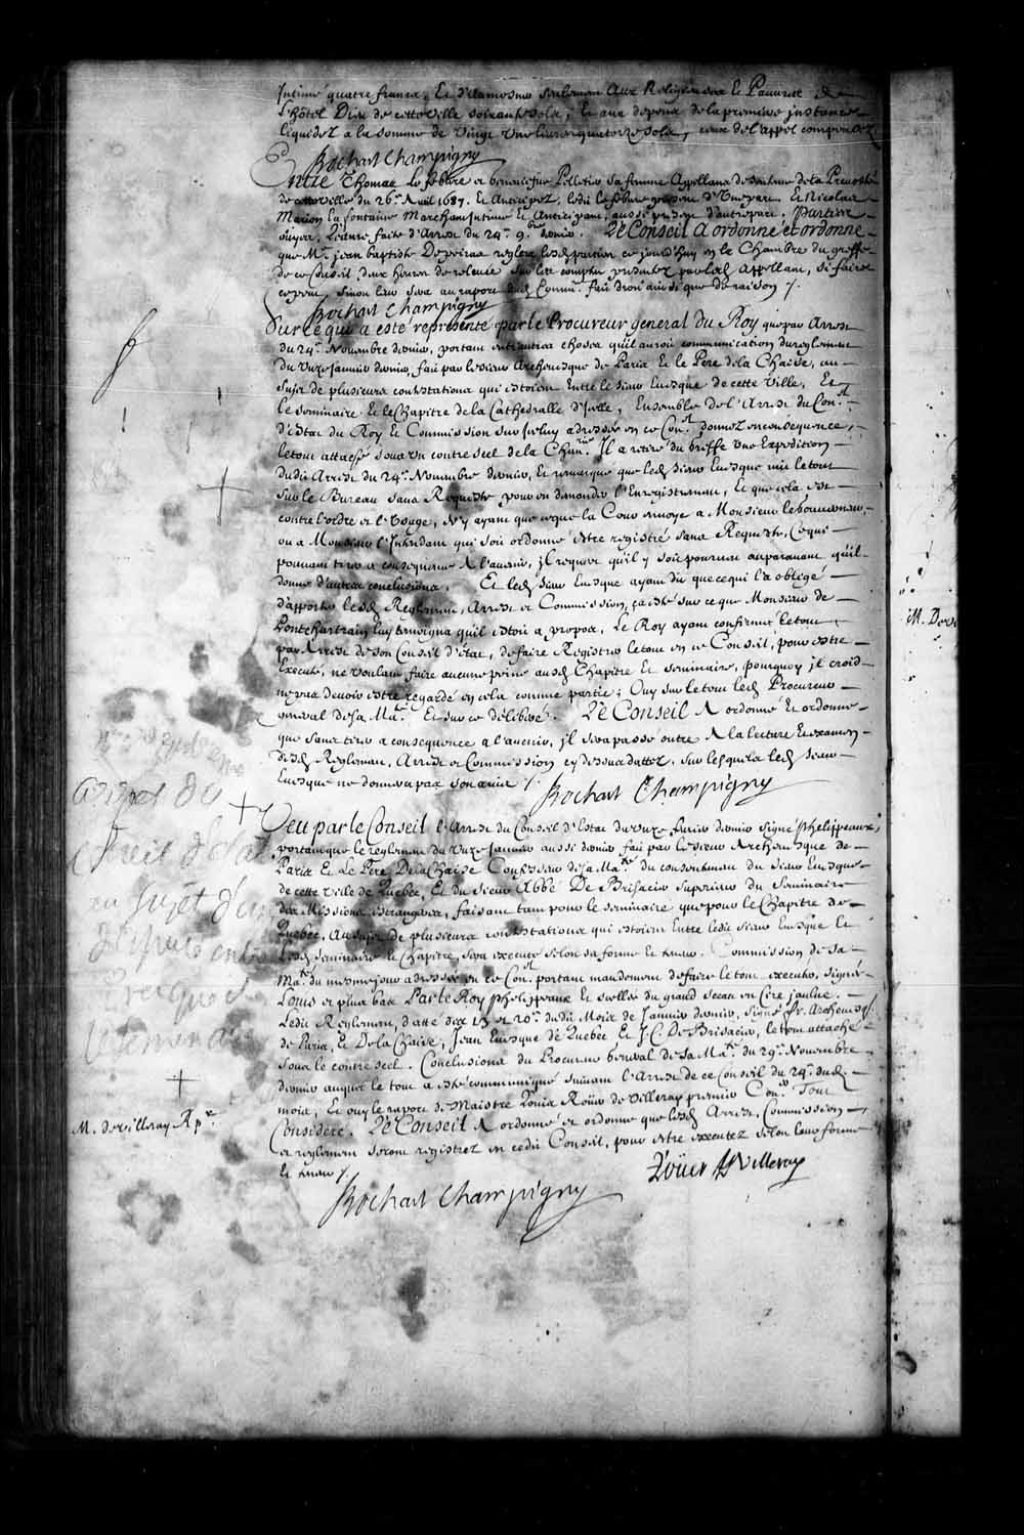 Intimé quatre francs, Et d'Aumosne seulement Aux Religieuses et Pauvres de
L'hôtel Dieu de cette ville soixante sols, Et aux depens de la premiere instance
liquidez a la somme de Vingt Une livres quatorze sols, ceux de l'appel compensez
Bochart Champigny
Entre Thomas Lefebvre et Geneviefve Pelletier sa femme Appellans de sentence de la Prevosté
de cette ville du 26e. Avril 1687. Et Anticipez, ledit lefebvre present d'Une part. Et Nicolas
Marion La fontaine Marchand Intimé Et Anticipant, aussi present d'autre part. Parties
ouyes, Lecture faite d'Arrest du 24e. 9bre dernier. Le Conseil A ordonné et ordonne
que Me. jean baptiste Depeiras reglera lesd parties ce jourd'huy en la Chambre du greffe
de ce Conseil, deux heures de relevée sur les comptes presentez par lesd Appellans, si faire
ce peut, sinon leur sera au raport dud Commre. fait droit ainsi que de raison /.
Bochart Champigny
Sur ce qui a esté representé par le Procureur general du Roy que par Arrest
du 24e. Novembre dernier, portant entr'autres choses qu'il auroit communication du reglement
du Unze Janvier dernier, fait par les sieur Archevesque de Paris Et le Pere de la Chaise, au
sujet de plusieurs contestations qui estoient Entre le sieur Evesque de cette Ville, Et
le seminaire Et le Chapitre de la Cathedralle d'Icelle, Ensemble de l'Arrest du Conel.
d'estat du Roy Et Commission sur Iceluy adressée en ce Conel. donnez en consequence,
le tout attaché sous un contre scel de la Chanrie. Il a retiré du Greffe Une Expedition
dudit Arrest du 24e. Novembre dernier, Et remarque que led sieur Evesque mit le tout
sur le Bureau sans Requeste pour en demander l'Enregistrement, Et que cela est
contre l'ordre et l'Usage, n'y ayant que ce que la Cour envoye a Monsieur le Gouverneur,
ou a Monsieur l'Intendant qui soit ordonné estre registré sans Requeste, Ce qui
pouvant tirer a consequence A l'avenir, il requert qu'il y soit pourveu auparavant qu'il
donne d'autres conclusions. Et led sieur Evesque ayant dit que ce qui l'a obligé
d'apporter lesd Reglement, Arrest et Commission, ça esté sur ce que Monsieur de
Pontchartrain luy temoigna qu'il estoit a propos, Le Roy ayant confirmé le tout
par Arrest de son Conseil d'Estat, de faire Registrer le tout en ce Conseil, pour estre
Executé, ne voulant faire aucune peine ausd Chapitre Et seminaire, pourquoy il croit
ne pas devoir estre regardé en cela comme partie; Ouy sur le tout led Procureur
general de sa Mate. Et sur ce deliberé. Le Conseil A ordonné Et ordonne
que sans tirer a consequence a l'avenir, il sera passé outre A la lecture Et examen
desd Reglement, Arrest et Commission cy dessus dattez, sur lesquels led sieur
Evesque ne donnera pas son avis /.
Bochart Champigny
Arrest du
Conseil d'estat
au sujet d'un
M. de villeray Rpr.
Veu par le Conseil l'Arrest du Conseil d'Estat du Unze fevrier dernier signé Phelippeaux,
portant que le reglement du Unze Janvier aussi dernier fait par les sieur Archevesque de
Paris Et Le Pere De la Chaise Confesseur de sa Mate. du consentement du sieur Evesque
de cette Ville de Quebec, Et du sieur Abbé De Brisacier superieur du Seminaire
des Missions Estrangeres, faisant tant pour le seminaire que pour le Chapitre de
Quebec, Au sujet de plusieurs contestations qui estoient Entre ledit sieur Evesque Et
lesd seminaire Et Chapitre, sera executé selon sa forme Et teneur. Commission de sa
Mate. du mesme jour adressée en ce Conel. portant mandement de faire le tout executer, signée
Louis et plus bas Par le Roy Phelippeaux Et scellée du grand sceau en Cire jaulne.
Ledit Reglement datté des 19 et 20e. dudit Mois de Janvier dernier, signé Fr. Archevesq.
de Paris, Et De la Chaise, Jean Evesque de Quebec Et J.C. De Brisacier, le tout attaché
sous le contre scel. Conclusions du Procureur General de sa Mate. du 29e. Novembre
dernier auquel le tout a esté communiqué suivant l'Arrest de ce Conseil du 24e. dud
mois, Et ouy le raport de Maistre Louis Roüer de Villeray premier Coner. Tout
Consideré. Le Conseil A ordonné et ordonne que lesd Arrest, Commission
et reglement seront registrez en cedit Conseil, pour estre executez selon leur forme
Et teneur /.
Roüer de Villeray
Bochart Champigny
M. Devi